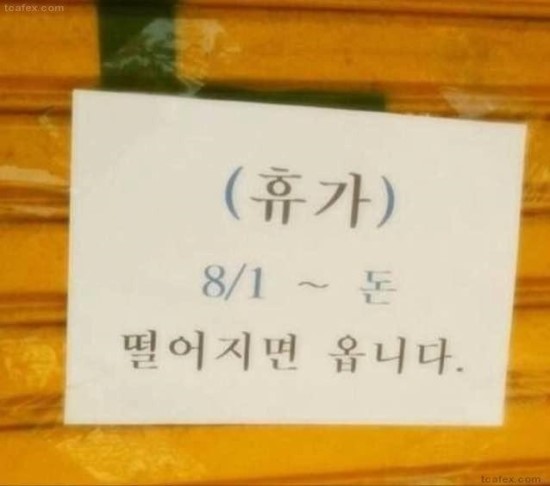 tcafex.com
(휴가)
8/1 ~ 돈
떨어지면 옵니다.
tcafex.com